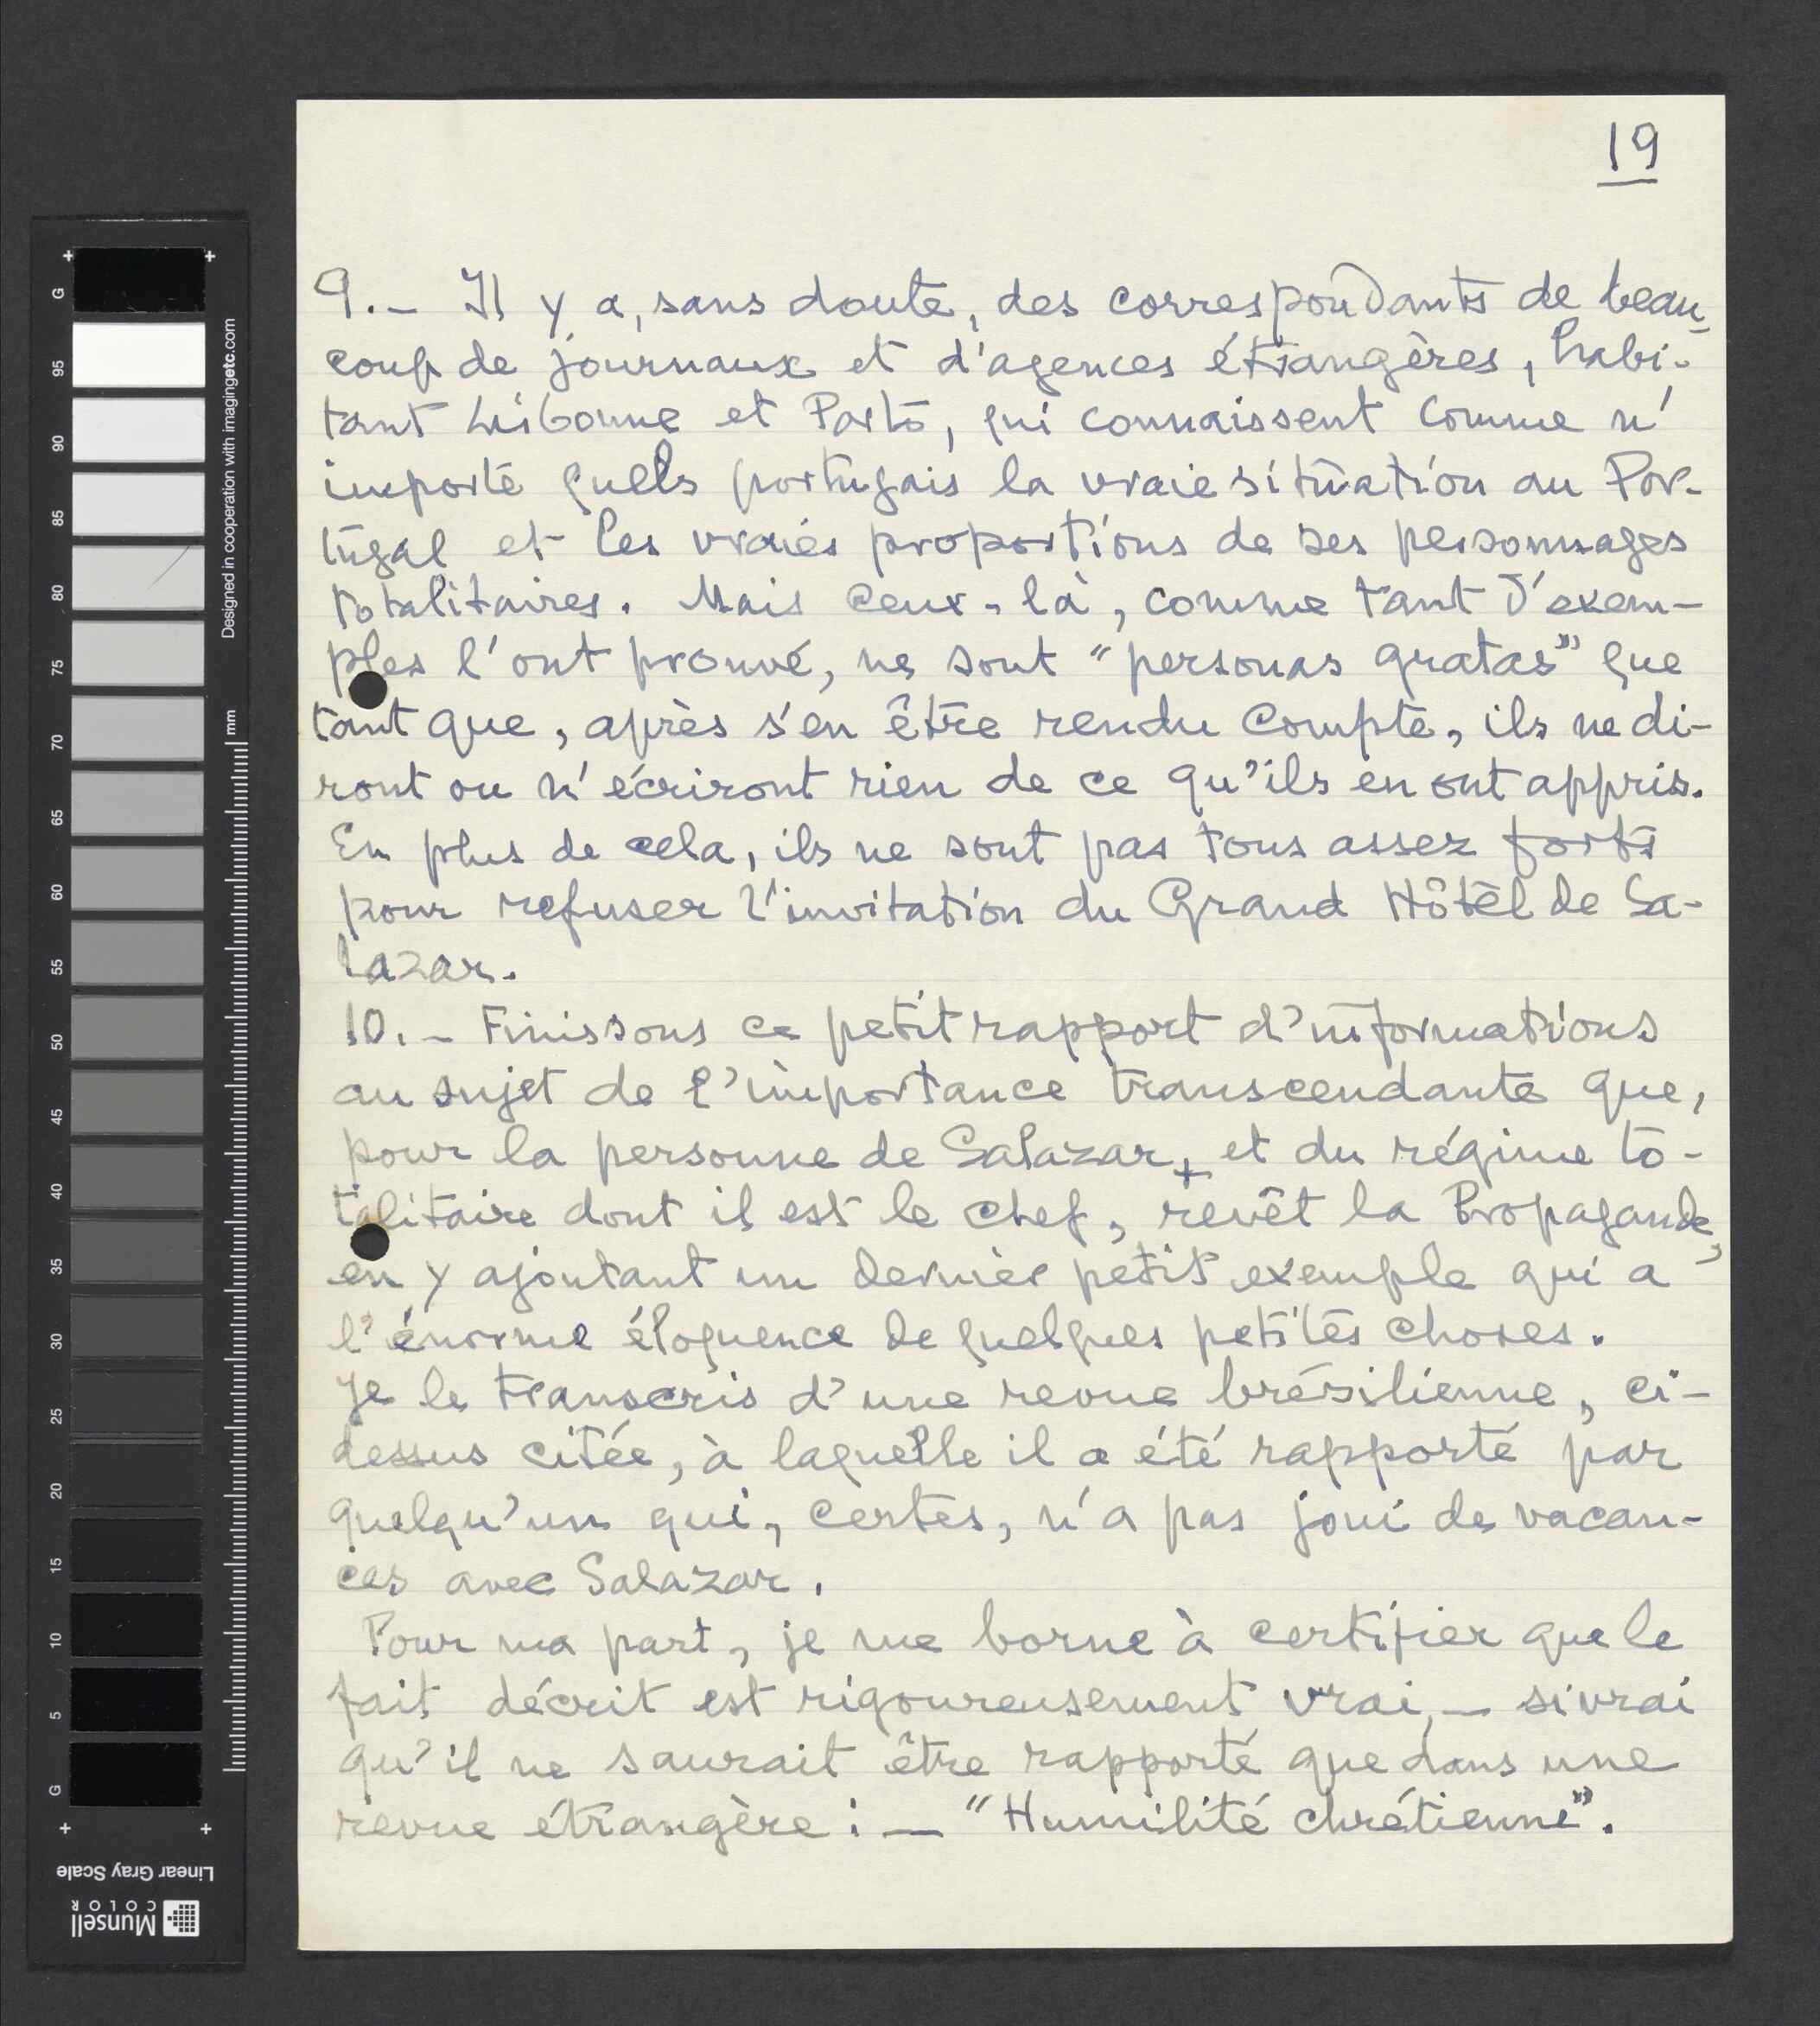 19
9.- Il y a, sans doute, des correspondants de beau-
coup de journaux et d'agences étrangères, habi-
tant Lisbonne et Porto, qui connaissent comme n'
importe quels portugais la vraie situation au Por-
tugal et les vraies proportions de ses personnages
totalitaires. Mais ceux-là, comme tant d'exem-
ples l'ont prouvé, ne sont "personas gratas" que
tant que, après s'en être rendu compte, ils ne di-
ront ou n'écriront rien de ce qu'ils en ont appris.
En plus de cela, ils ne sont pas tous assez forts
pour refuser l'invitation du Grand Hôtel de Sa-
lazar.
10.- Finissons ce petit rapport d'informations
au sujet de l'importance transcendante que,
pour la personne de Salazar, et du régime to-
talitaire dont il est le chef, revêt la Propagande,
en y ajoutant un dernier petit exemple qui a
l'énorme éloquence de quelques petites choses.
Je le transcris d'une revue brésilienne, ci-
dessus citée, à laquelle il a été rapporté par
quelqu'un qui, certes, n'a pas joui de vacan-
ces avec Salazar.
Pour ma part, je me borne à certifier que le
fait décrit est rigoureusement vrai, - si vrai
qu'il ne saurait être rapporté que dans une
revue étrangère: - "Humilité chrétienne".
G 95 90 85 80 75 70 65 60 55 50 45 40 35 30 25 20 15 10 5 G
Designed in cooperation with imagingetc.com
mm
Linear Gray Scale
Munsell
COLOR